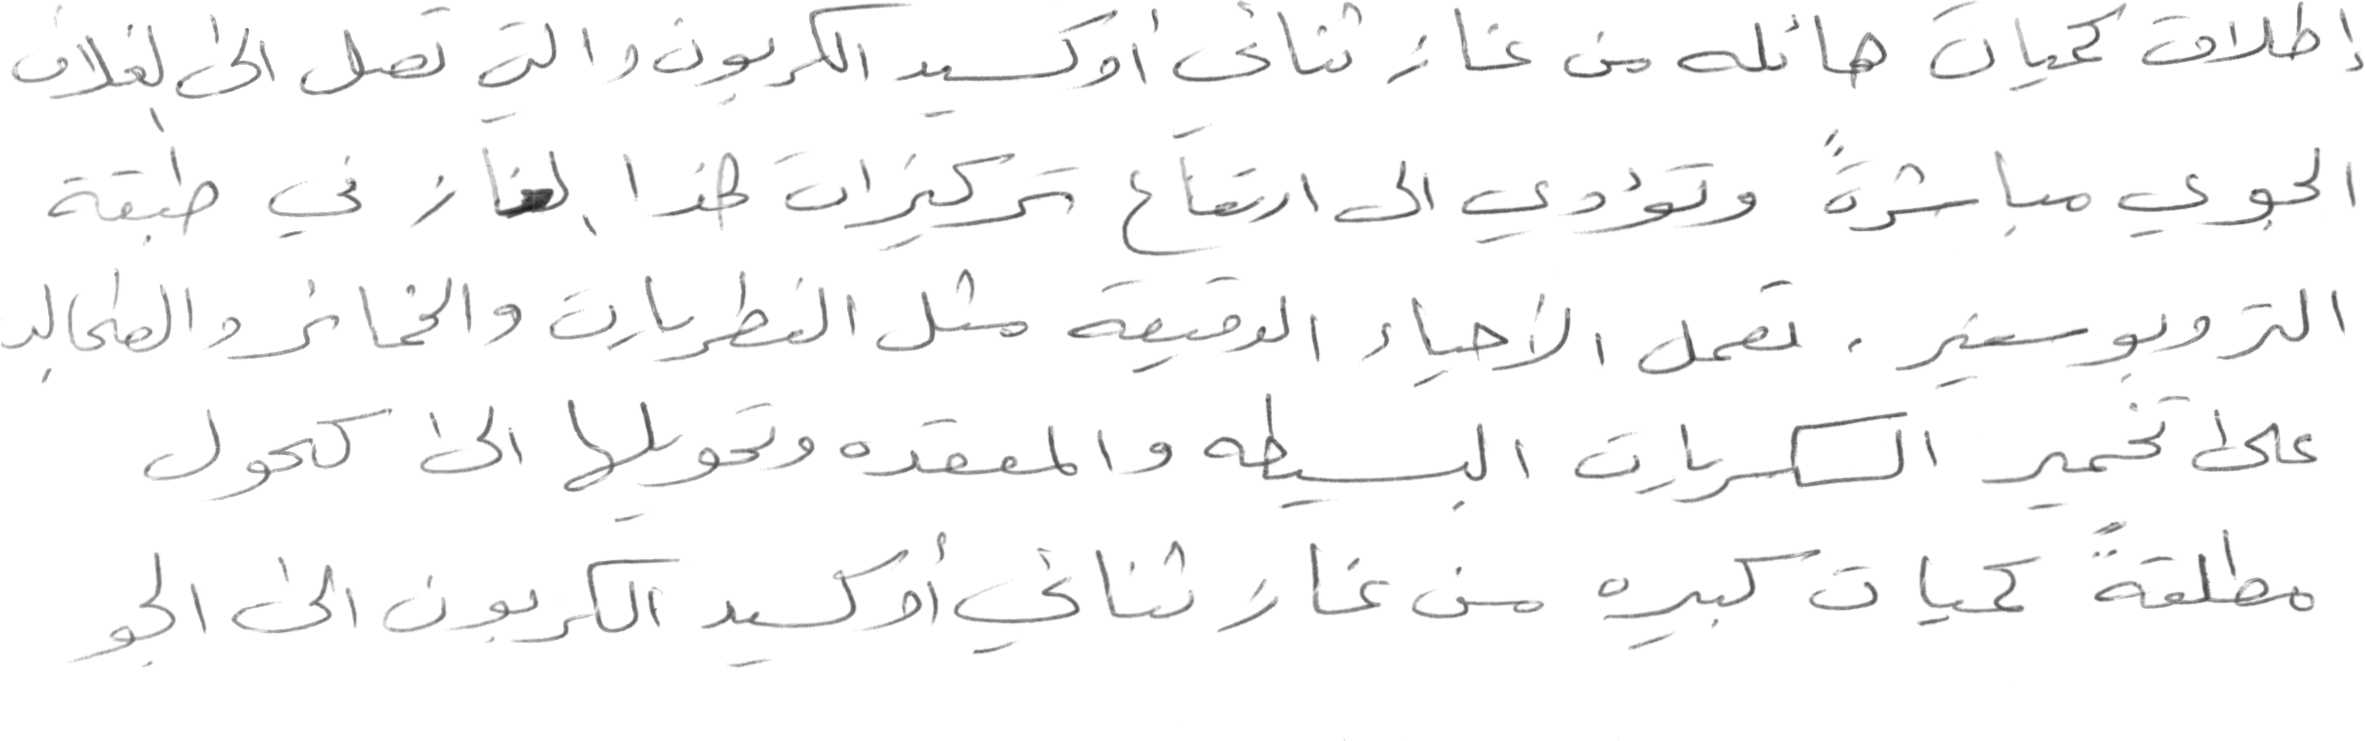 إطلاق كميات هائله من غاز ثنائي أوكسيد الكربون والتي تصل الى الغلاف
الجوي مباشرةً وتؤدي الى ارتفاع تركيزات هذا الغاز في طبقة
التروبوسفير. تعمل الأحياء الدقيقة مثل الفطريات والخمائر والطحالب
على تخمير السكريات البسيطه والمعقده وتحويلها الى كحول
مطلقةً كميات كبيره من غاز ثنائي أوكسيد الكربون الى الجو